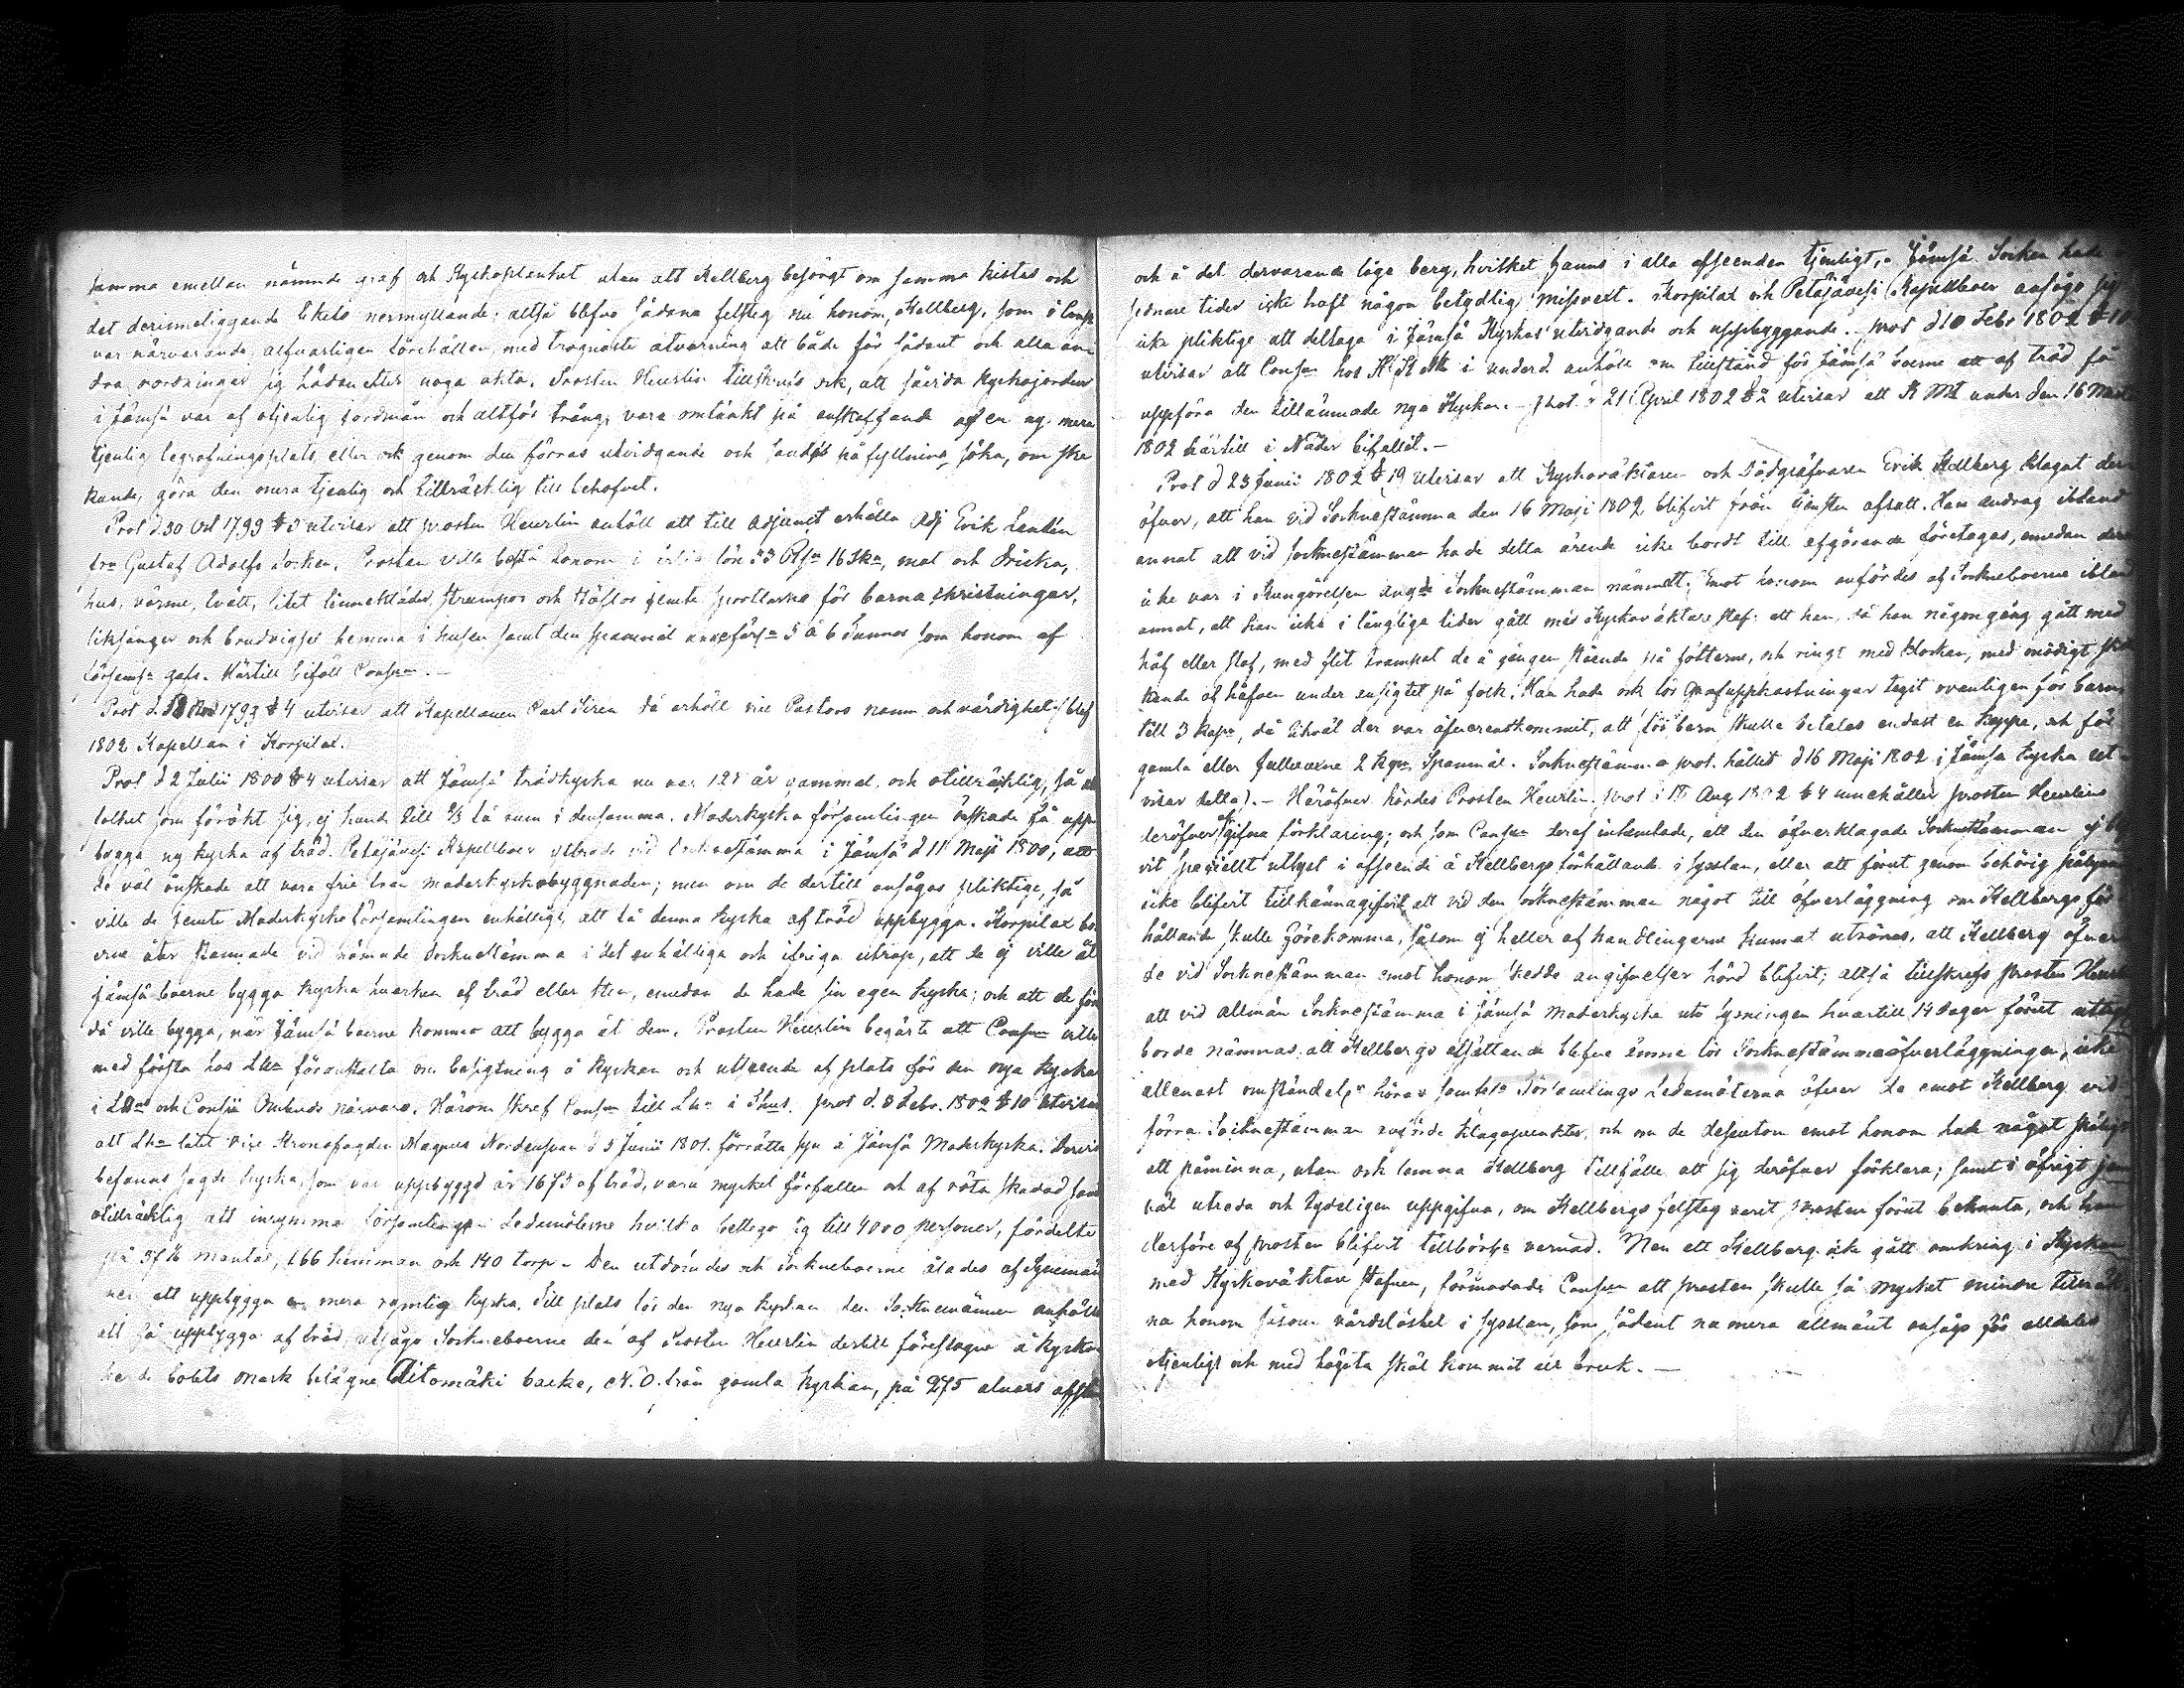 samma emellan nämnde graf och Kyrkoplanket utan att Hellberg besörgt om samma kistas och
det derinneliggande likets nermyllande; altså blefvo sådana felsteg nu honom, Hellberg, som i Cons
var närvarande, alfvarligen förehållen, med trägnaste atvarning att både för sådant och alla an
dra oordningar sig hädanefter noga akta. Prosten Heurlin tillskrefs ock, att såvida kyrkojorden
i Jämsä var af otjenlig jordmån och altför trång, vara omtänkt på anskaffande af en ny mera
tjenlig begrafningsplats, eller ock genom den förras utvidgande och påfyllning söka, om ske
kunde, göra den mera tjenlig och tillräcklig till behofvet.
Prot d. 30 Oct 1793 § 5 utvisar att prosten Heurlin anhöll att till adjunct erhålla Adj Erik Lenkén
fr. Gustaf Adolfs Socken. Prosten ville bestå honom i årlig lön 33 16 mat och dricka,
hus, värme, tvätt, litet linnekläder, strumpor och stöflor jemte sportlarna för barna christningar,
liksånger och brudvigsel hemma i husen samt den spannmål 5 à 6 Tunnor som honom af
förs. gafs. Härtill biföll Cons.
Prot d. 1793 § 4 utvisar att Kapellanen Carl Siren då erhöll vice Pastors namn och värdighet (blef
1802 Kapellan i Korpilax.
Prot d 2 Julii 1800 § 4 utvisar att Jämsä trädkyrka nu var 128 år gammal, och otillräcklig, så att
folket som förökt sig, ej hunde till 1/3 få rum i densamma. Moderkyrko församlingen önskade få upp
bygga ny kyrka af träd. Petäjävesi Kapellboer yttrade vid Socknestämma i Jämsä d 11 Maji 1800, att
de väl önskade att vara frie från moderkyrkobyggnaden; men om de dertill ansågos pliktige, så
ville de jemte Moderkyrko församlingen enhälligt, att få denna kyrka af träd uppbygga. Korpilax bo
erne åter stannade vid nämnde Socknestämma i det enhälliga och ifriga utrop, att de ej ville åt
Jämsä boerne bygga kyrka hvarken af träd eller sten, emedan de hade sin egen kyrka; och att de för
då ville bygga, när Jämsä boerne kommer att bygga åt dem. Prosten Heurlin begärte att Cons ville
med första hos Lh. föranstalta om besigtning å kyrkan och utseende af plats för den nya kyrkan
i Lh. och Consii Ombuds närvaro. Härom skref Cons till Lh. i Thus. prot d. 3 Febr. 1802 § 10 utvisar
att Lh. låtit vice Kronofogden Magnus Nordenswan d 5 Junii 1801. förrätta syn i Jämsä Moderkyrka. Dervid
befanns sagde kyrka, som var uppbyggd år 1673 af träd, vara mycket förfallen och af röta skadad samt
otillräcklig att inrymma församlings Ledamöterne hvilka bestego sig till 4000 personer, fördelte
på mantal, 166 hemman och 140 torp. Den utdömdes och Sockneboerne ålades af Synemän
nen att uppbygga en mera rymlig kyrka. Till plats för den nya kyrkan den Socknemännen anhöllo
att få uppbygga af träd utsågo Sockneboerne den af Prosten Heurlin dertill föreslagne å kyrko
herde bolets mark belägne Aitomäki backe, N.O. från gamla kyrkan, på 275 alnars afstå
och å det dervarande låga berg, hvilket fanns i alla afseenden tjenligt. Jämsä Socken hade i
sednare tider icke haft någon betydlig missvext. Korpilax och Petäjävesi Kapellboer ansågo sig
icke pliktige att deltaga i Jämsä Kyrkas utvidgande och uppbyggande. prot d 10 Febr 1802 § 10
utvisar att Cons hos i underd. anhöll om tillstånd för Jämsä boerne att af träd få
uppföra den tillämnade nya kyrkan. Prot. 21 April 1802 § 2 utvisar att K Mt under den 16 Mars
1802 härtill i Nåder bifallit.
Prot d 23 Junii 1802 § 19 utvisar att Kyrkoväktaren och Dödgräfvaren Erik Hellberg klagat der
öfver, att han vid Socknestämma den 16 Maji 1802 blifvit från tjensten afsatt. Han androg ibland
annat att vid socknestämman hade detta ärende icke bordt till afgörande företagas, emedan det
icke var i Kungörelsen ang. Socknestämman nämndt. Emot honom anfördes af Sockneboerne ibland
annat, att han icke i långliga tider gått med Kyrkoväktare staf: att han, då han någongång gått med
håf eller staf, med flit trampat de å gången stående på fötterne, och ringt med klockan, med onödigt stö
tande af håfven under ansigtet på folk. Han hade ock för Grafuppkastningar tagit ovanligen för barn
till 3 kap., då likväl der var öfverenskommit, att för barn skulle betalas endast en kappe, och för
gamla eller fullvuxne 2 kpr. Spannmål. Socknestämma prot. hållet d 16 Maji 1802 i Jämsä kyrka ut
visar detta). Häröfver hördes Prosten Heurlin. prot d 18 Aug 1802 § 4 innehåller prosten Heurlins
deröfver afgifna förklaring; och som Cons deraf inhemtade, att den öfverklagade Socknestämman ej bli
vit speciellt utlyst i afseende å Hellbergs förhållande i sysslan, eller att förut genom behörig pålysn
icke blifvit tillkännagifvit att vid den socknestämman något till öfverläggning om Hellbergs för
hållande skulle förekomma, såsom ej heller af handlingarne kunnat utrönas, att Hellberg öfver
de vid Socknestämman emot honom skedde angifvelser hörd blifvit; altså tillskrefs prosten Heurlin
att vid allmän Socknestämma i Jämsä moderkyrka uti lysningen hvartill 14 dagar förut utlys
borde nämnas, att Hellbergs afsättande blefve ämne för Socknestämmoöfverläggningen, icke
allenast omständel. höra samtel. Församlings Ledamöterna öfver de emot Hellberg vid
förra Socknestämman anförde klagopunkter, och om de dessutom emot honom hade något skäligt
att påminna, utan ock lemna Hellberg tillfälle att sig deröfver förklara; samt i öfrigt jem
väl utreda och tydeligen uppgifva, om Hellbergs felsteg varit prosten förut bekanta, och han
derföre af prosten blifvit tillbörl. varnad. Men att Hellberg icke gått omkring i kyrkan
med Kyrkoväktare stafven, förmodade Cons att prosten skulle så mycket mindre tillräk
na honom såsom vårdslöshet i sysslan, som sådant numera allmänt ansågs för alldeles
otjenligt och med högsta skäl kommit ur bruk.